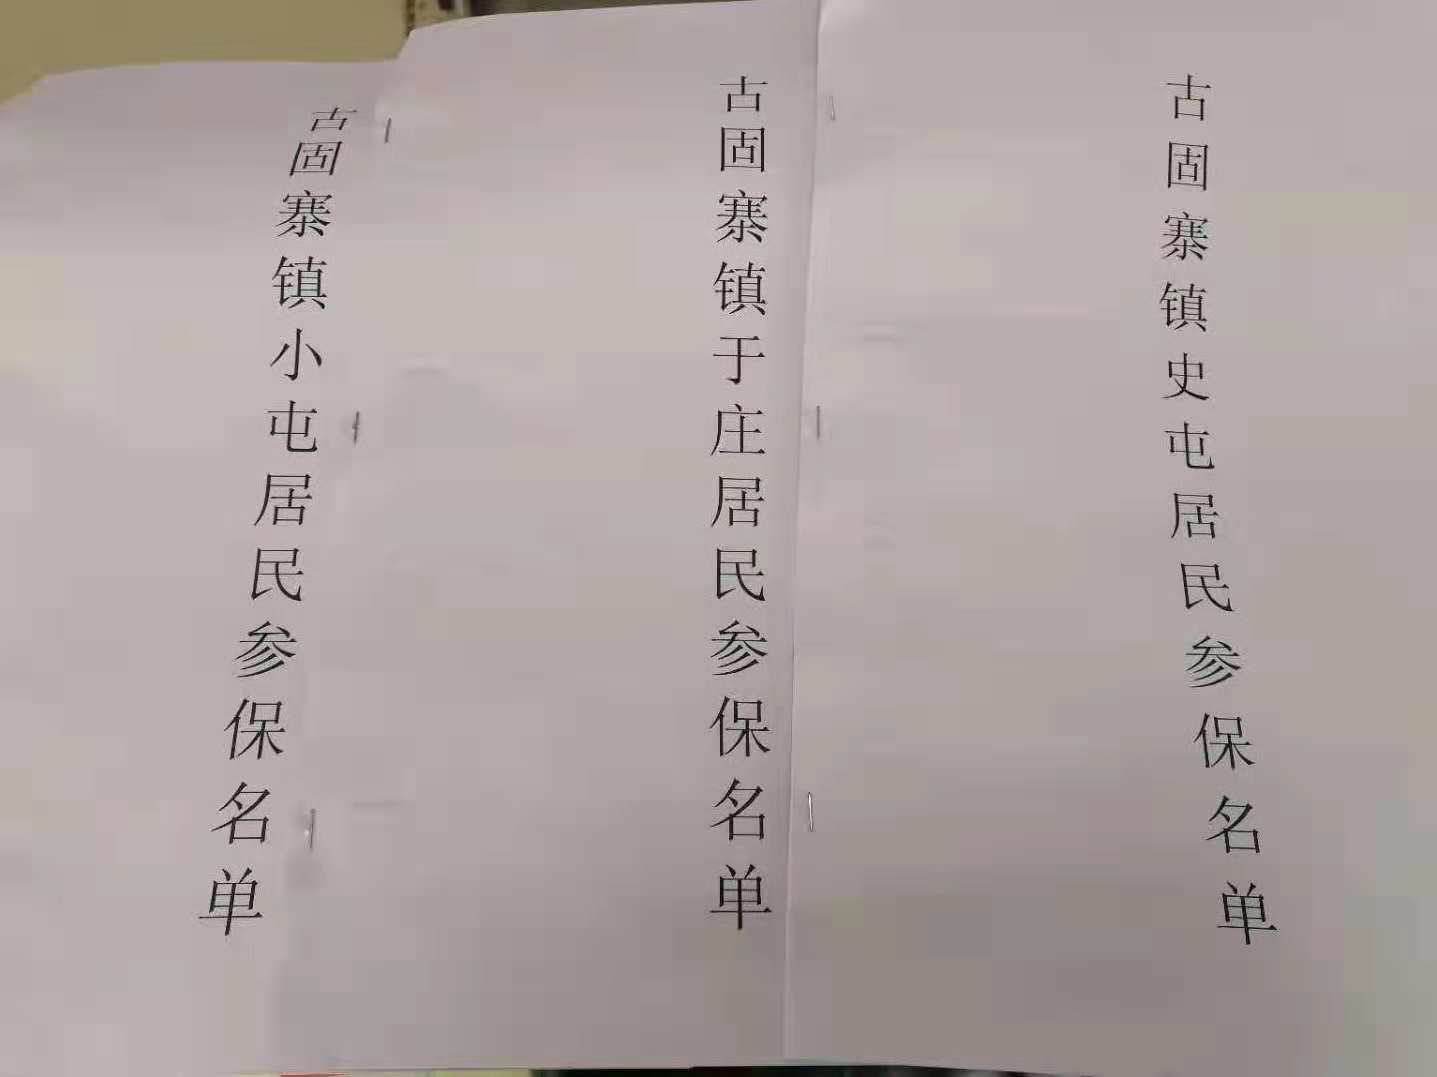 古固寨镇小屯居民参保名单
古固寨镇于庄居民参保名单
古固寨镇史屯居民参保名单